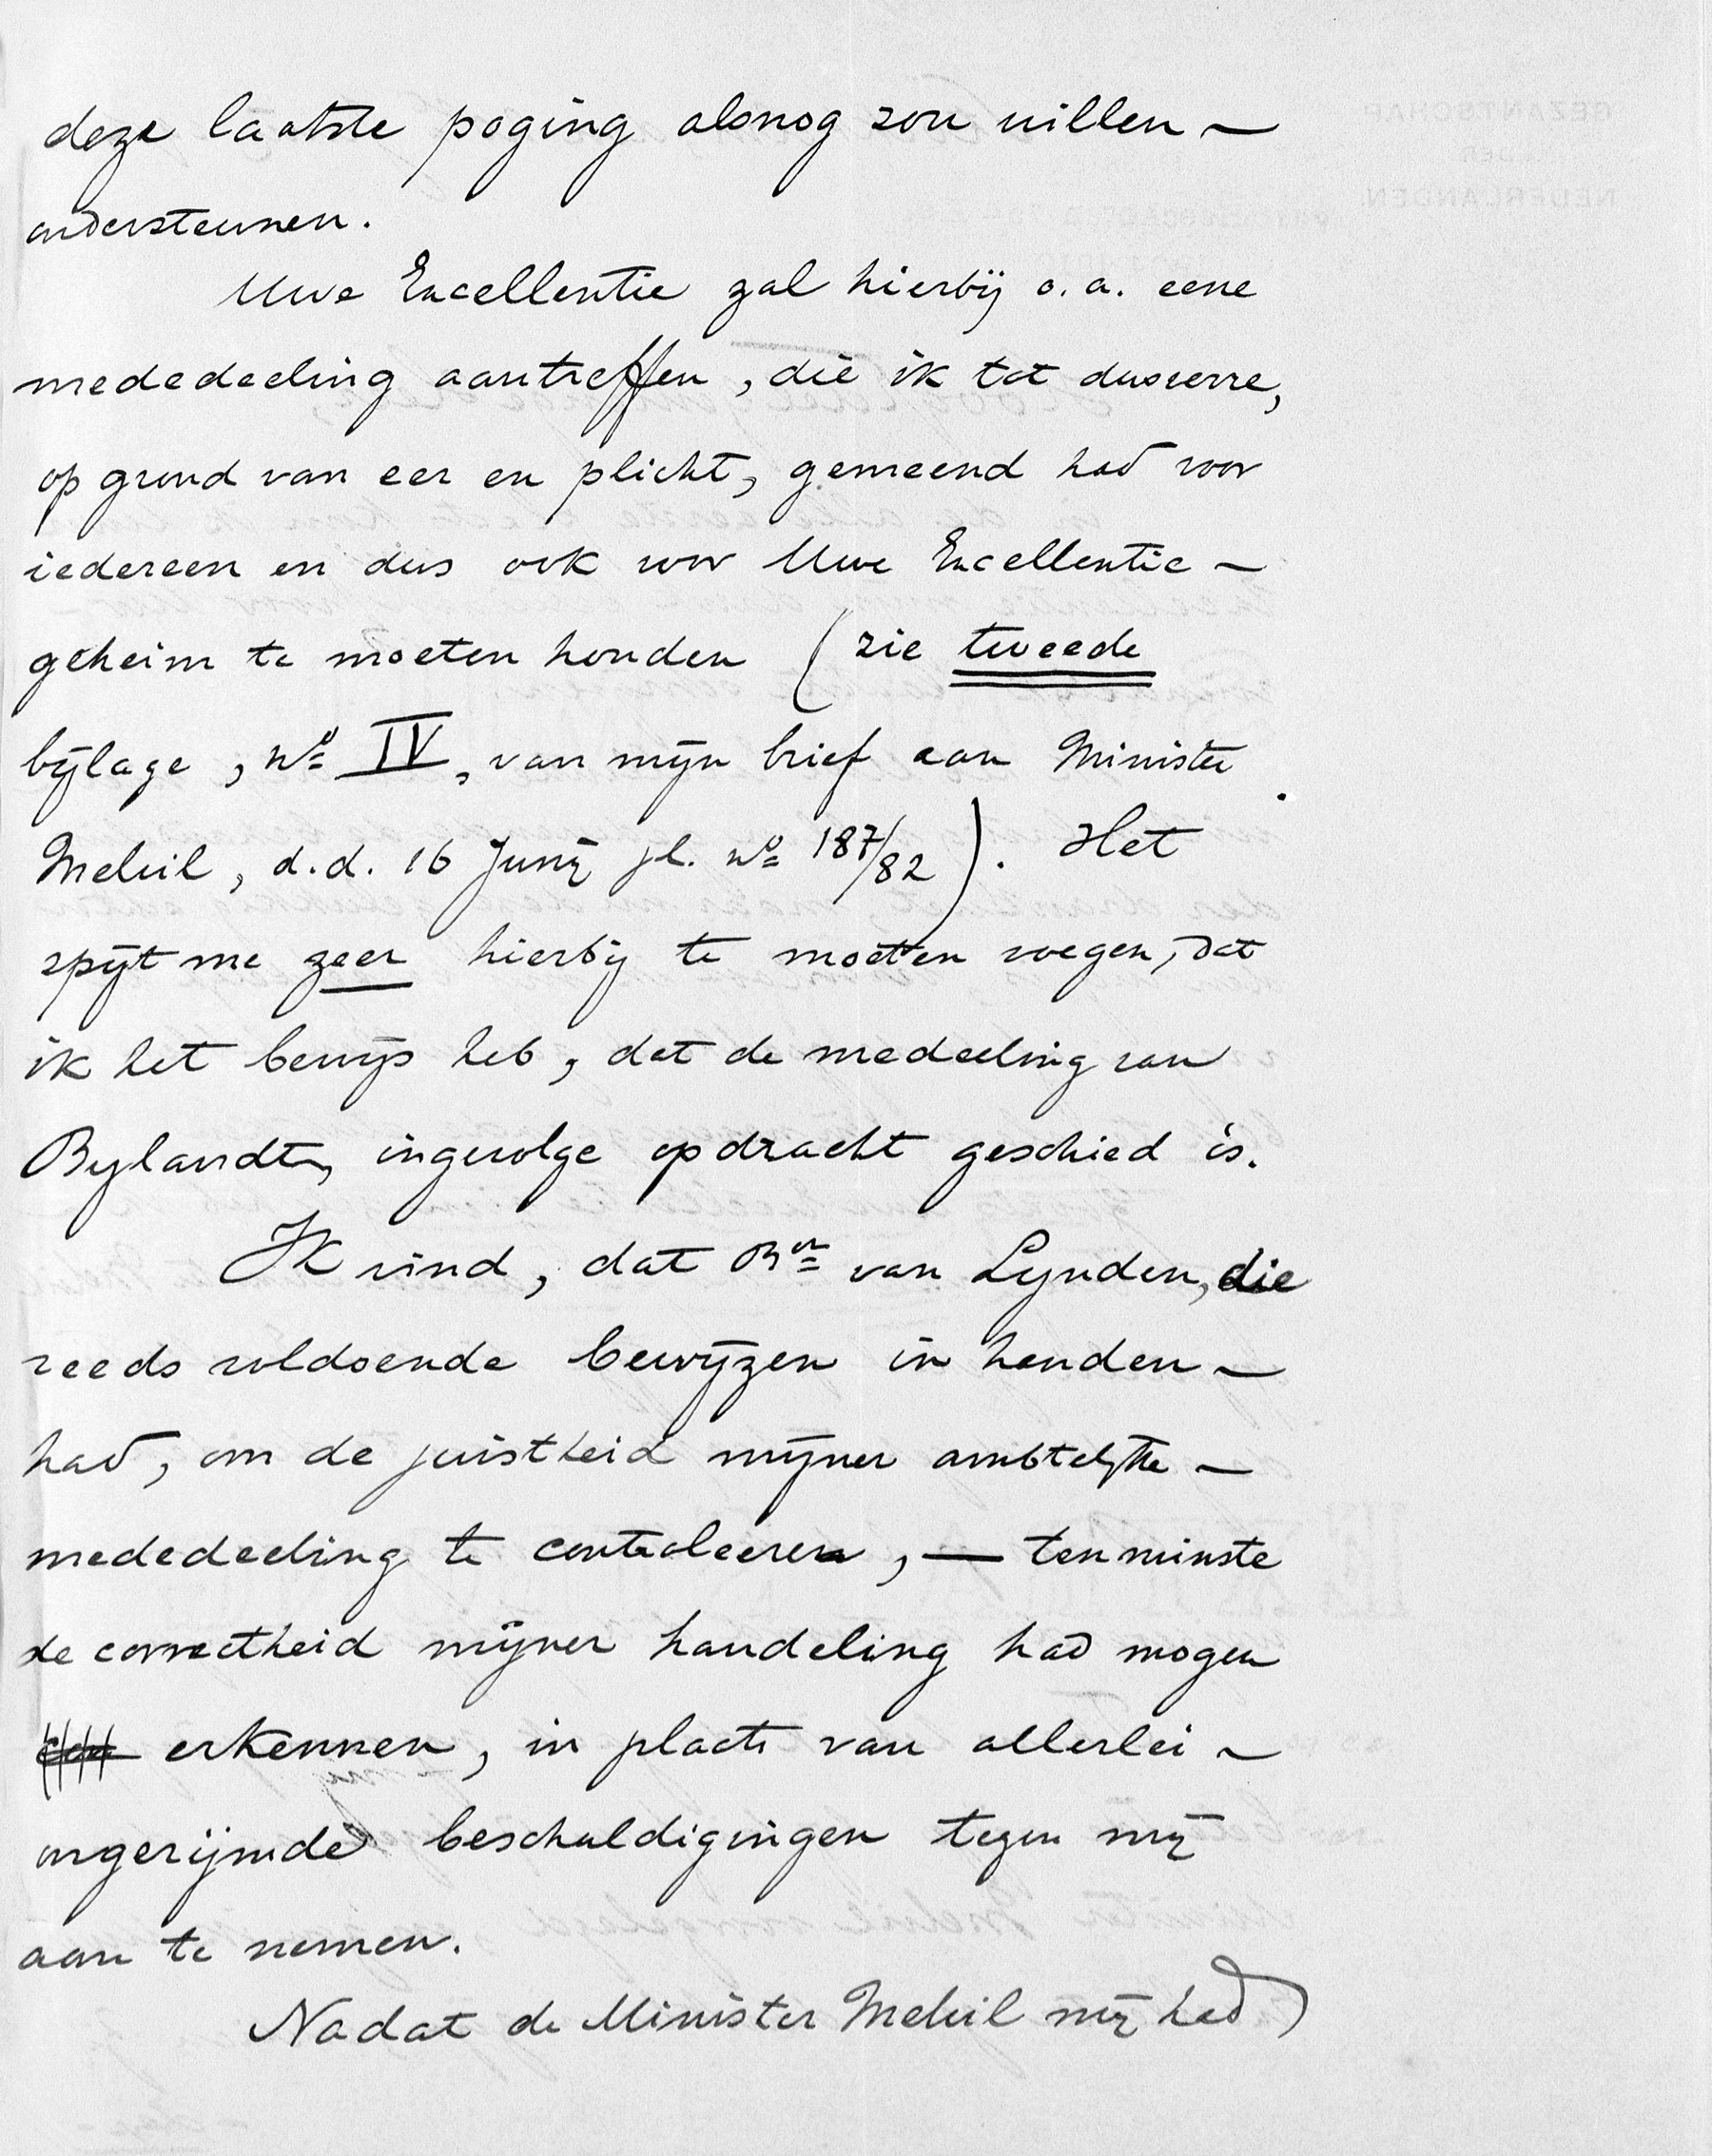 deze laatste poging alsnog zou willen —
ondersteunen.
Uwe Excellentie zal hierbij o.a. eene
mededeeling aantreffen, die ik tot dusverre,
op grond van eer en plicht, gemeend had voor
iedereen en dus ook voor Uwe Excellentie —
geheim te moeten houden (zie tweede
bijlage, No IV, van mijn brief aan Minister
Melvil, d.d. 16 Junij jl. No 187/82). Het
spijt me zeer hierbij te moeten voegen, dat
ik het bewijs heb, dat de medeeling van
Bylandt, ingevolge opdracht geschied is.
Ik vind, dat Bon van Lynden, die
reeds voldoende bewijzen in handen —
had, om de juistheid mijner ambtelijke —
mededeeling te controleeren, — tenminste
de correctheid mijner handeling had mogen
erkennen, in plaats van allerlei —
ongerijmde beschuldigingen tegen mij
aan te nemen.
Nadat de Minister Melvil mij had
GEZANTSCHAP
DER
NEDERLANDEN